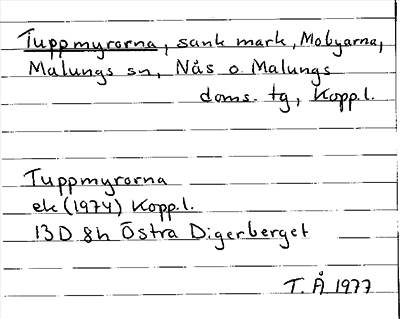 Tuppmyrorna, sank mark, Mobyarna,
Malungs sn, Nås o. Malungs
doms. tg, Kopp.l.
Tuppmyrorna
ek (1974) Kopp.l.
13D 8h Östra Digerberget
T. Å 1977